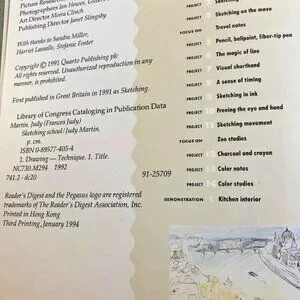 Picture Research
Photographers Ian Howes,
Art Director Moira Clinch
Publishing Director Janet Slingsby
With thanks to Sandra Miller,
Harriet Lassalle, Stefanie Foster
Copyright © 1991 Quarto Publishing plc
All rights reserved. Unauthorized reproduction in any
manner, is prohibited.
First published in Great Britain in 1991 as Sketching.
Library of Congress Cataloging in Publication Data
Martin, Judy (Frances Judy)
Sketching school/Judy Martin.
p. cm.
ISBN 0-89577-405-4
1. Drawing — Technique. 1. Title.
NC730.M294 1992
741.2 - dc20 91-25709
Reader's Digest and the Pegasus logo are registered
trademarks of The Reader's Digest Association, Inc.
Printed in Hong Kong
Third Printing, January 1994
PROJECT Sketching
PROJECT Sketching on the move
FOCUS ON Travel notes
PROJECT Pencil, ballpoint, fiber-tip pen
PROJECT The magic of line
PROJECT Visual shorthand
PROJECT A sense of timing
PROJECT Sketching in ink
PROJECT Freeing the eye and hand
PROJECT Sketching movement
FOCUS ON Zoo studies
PROJECT Charcoal and crayon
PROJECT Color notes
PROJECT Color studies
DEMONSTRATION Kitchen interior